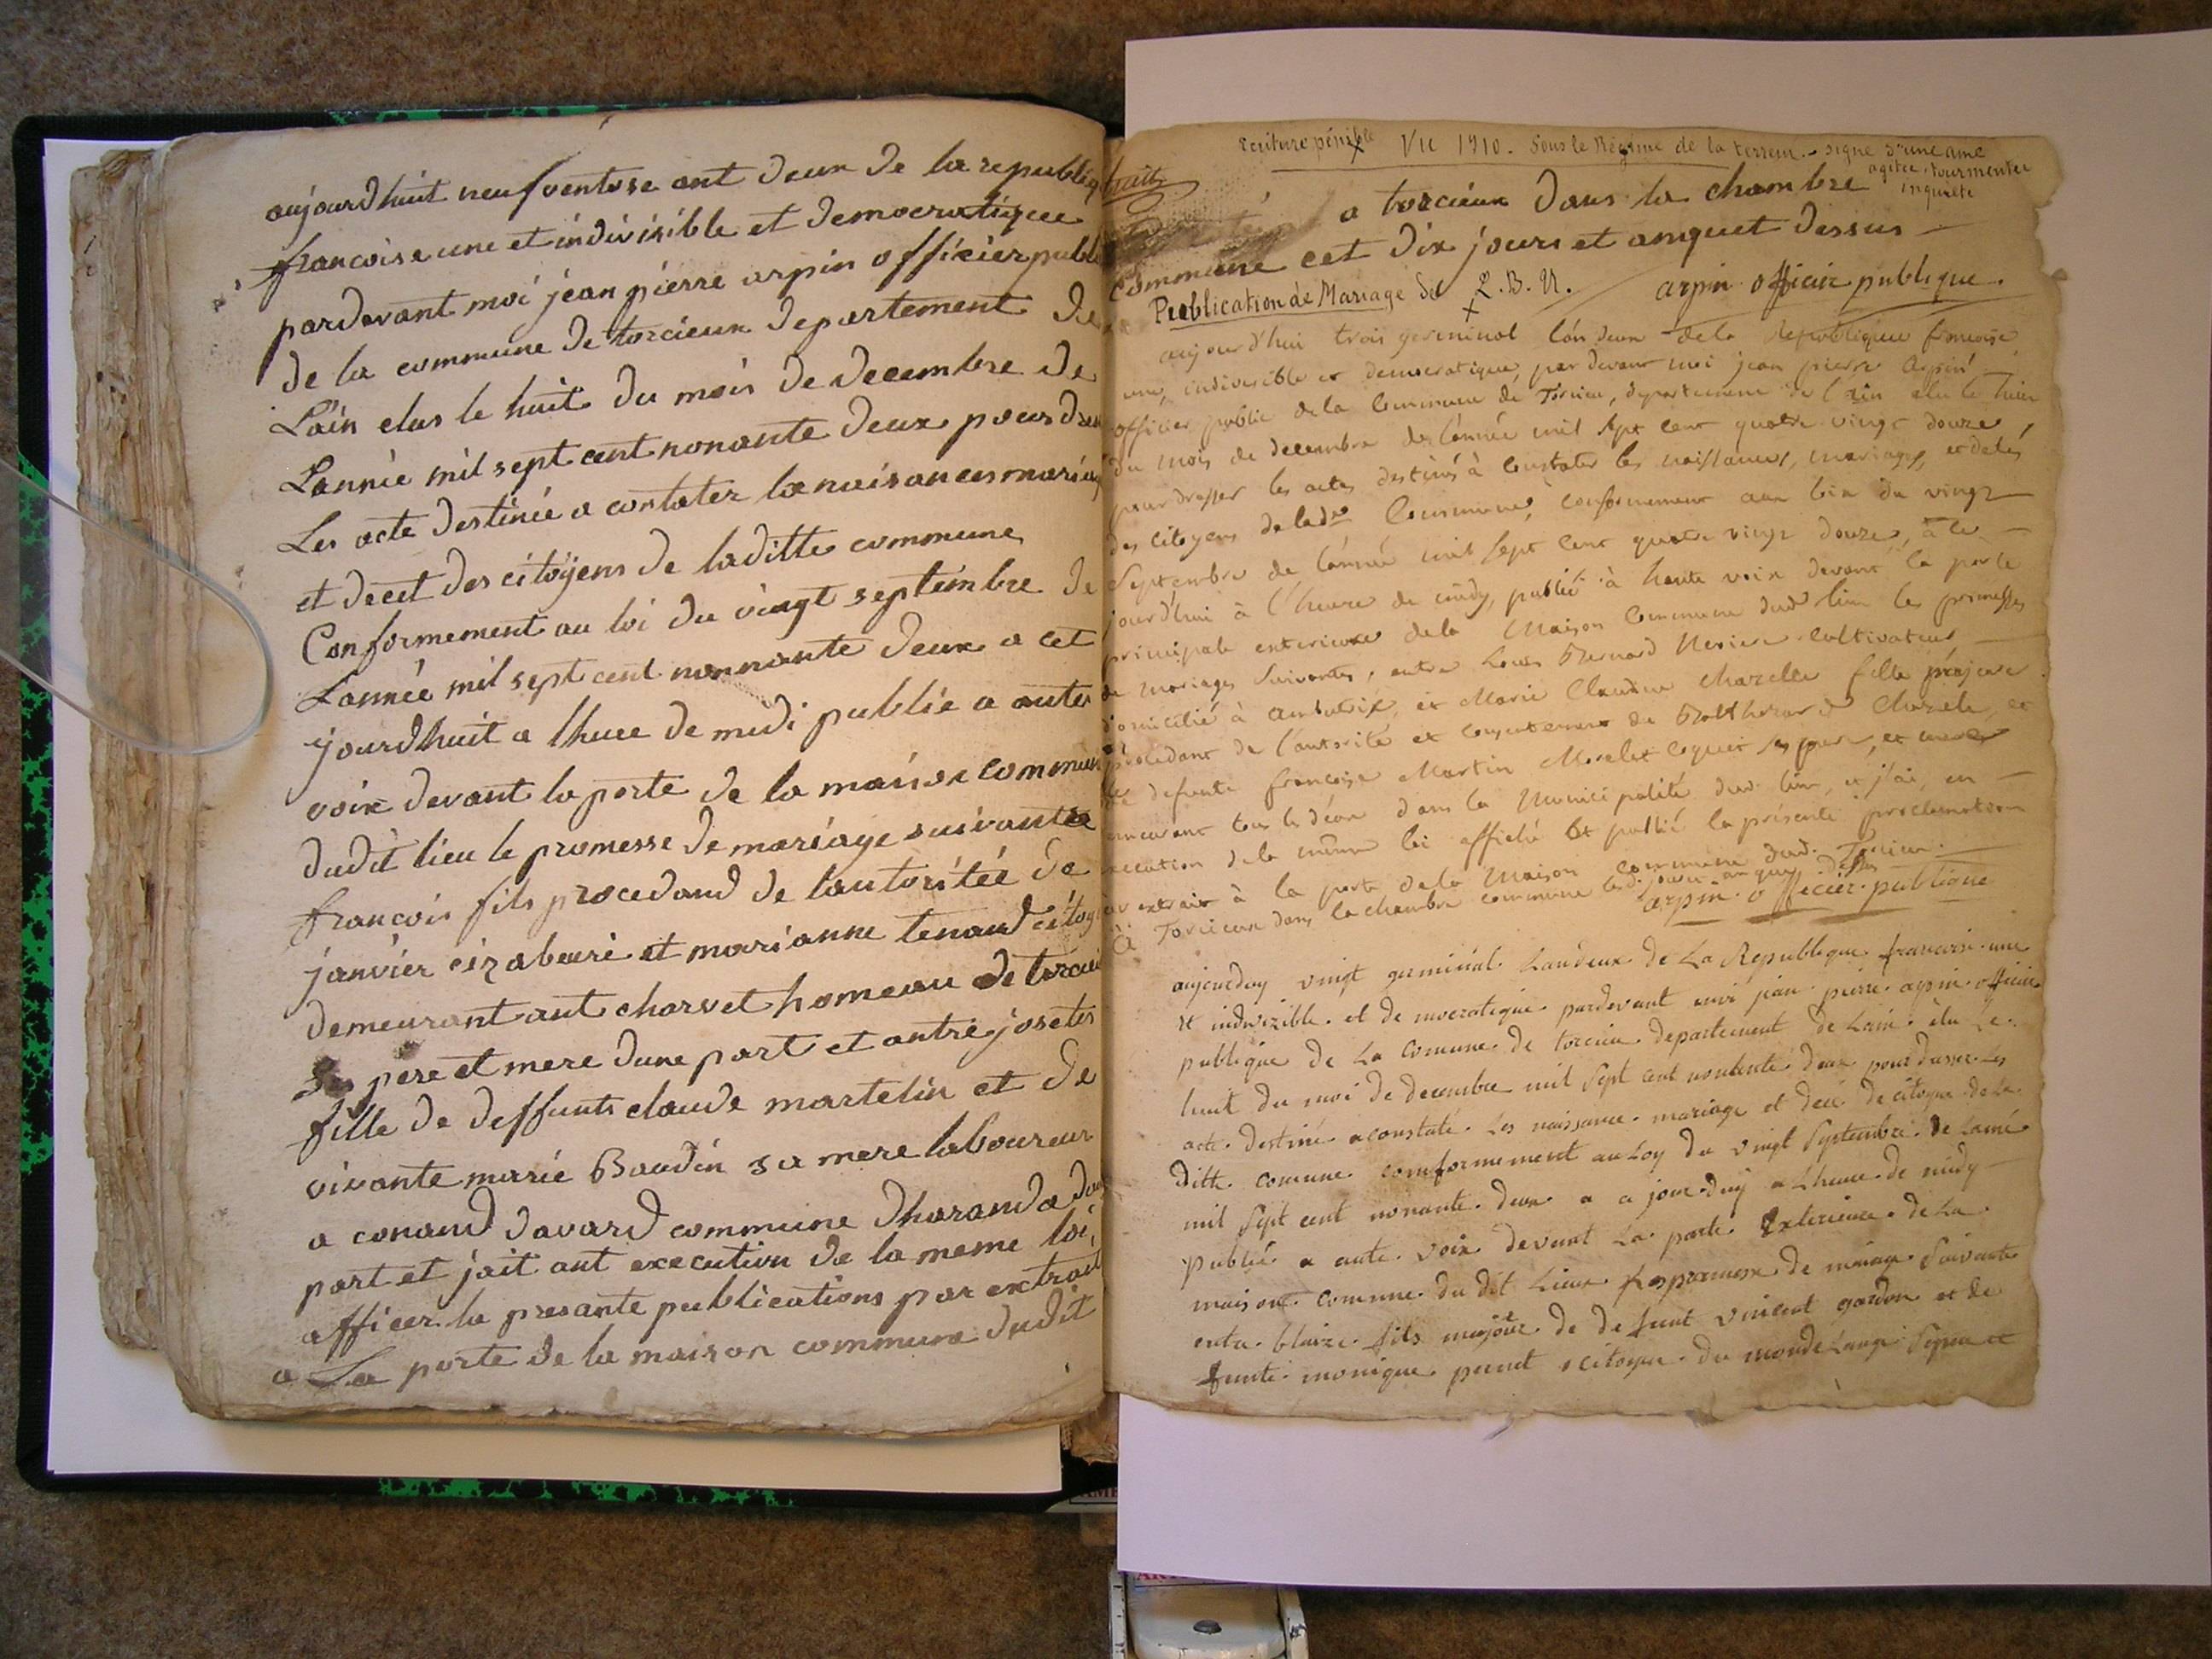 aujourdhuit neuf ventose ant deux de la republiq
francoise une et indivisible et democratique
pardevant moi jean pierre arpin officier publi
de la commune de torcieux departement de
Lain elus le huit du mois de decembre de
Lannie mil sept cent nonante deux pour dres
Les acte destinie a contater la naisances mariag
et decet des citoÿens de laditte commune
Conformement au loi du vingt septembre de
Lannée mil sept cent nonnante deux a cet
jourdhuit a lhuee de midi publié a autes
voix devant la porte de la maison commun
dudit lieu le promesse de mariage suivantee
francois fils procedand de lautoritéé de
janvier cirabeuri et marianne tenaud citoy
demeurant aut charvet homeau de torcui
Ses pere et mere dune part et antre josetes
fille de deffunts claude martelin et de
vivante marie Baudin sa mere laboureur
a conand davard commune dharanda dau
part et jait aut execution de la meme loi,
afficer la presante publications par extrait
a La porte de la maison commune dudit
Ecriture pénible Vu 1910. Sous le Régime de la terreur. - signe d'une ame
agitée, tourmentée
inquiète
a torcieux dans la chambre
Commune cet dix jours et anquet dessus
Publication de Mariage de L. B. N. arpin officier publique.
aujourd'hui trois germinal l'an deux de la Republique francoise
une, indivisible et democratique, par devant moi jean pierre Arpin
officier public de la Commune de Torcieu, departement de l'ain elu le huit
du mois de decembre de l'année mil sept cent quatre vingt douze,
pour dresser les actes destinés à constater les naissances, mariages, et decès
des citoyens de lade Commune, conformement aux loix du vingt
Septembre de l'année mil sept cent quatre vingt douze, à ce
jourd'hui à l'heure de midy, publié à haute voix devant la porte
principale exterieure de la Maison Commune dud lieu les promesses
de mariages suivantes, entre Louis Bernard Neviere cultivateur
domicilié à ambutrix, et Marie Claudine Chazelle fille majeure
procedant de l'autorité et consentement de Balthazard Chazelle, et
de defunte françoise Martin Morelet coquet ses pere, et mere
demeurant tous les deux dans la Municipalité dud. lieu, et j'ai, en
execution de la même loi affiché et publié la présente proclamation
par extrait à la porte de la Maison Commune dud. Torcieu.
à Torcieux dans la chambre commune les d. jours an que dessus
arpin officier publique
aujourduy vingt germinal Landeux de La Republique francoise une
et indivizible et democratique pardevant moi jean pierre arpin officier
publique de La Comune de torcieu departement de Lain élu Le
huit du moi de decembre mil Sept cent nonente deux pour dresser Les
acte destiné a constaté Les naissance mariage et decé de citoyen de La
ditte comune comformement au Loy du vingt Septembre de Lané
mil Sept cent nonante deux a ce jourduy a Lheure de midy
Publié a aute voix devant La porte Exterieure de La
maison comune du dit Lieux Les promesse de mariage Suivante
entre blaize fils majeur de defunt vincent gardon et de
funte monique